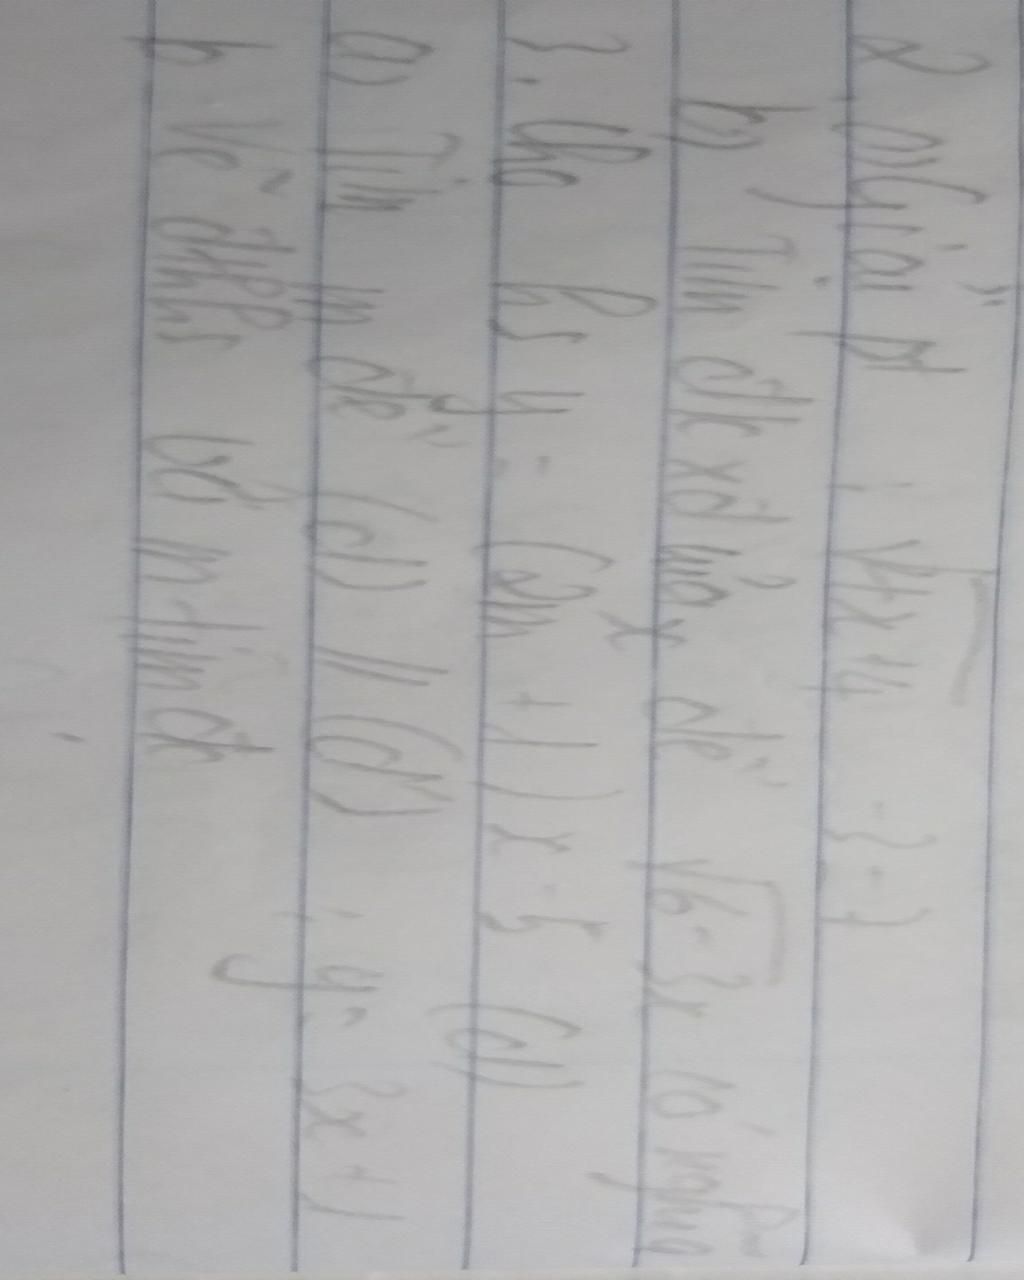 2 a) Giải pt : √4x+4 - 3 = 7
b) Tìm đk xđ của x để √6-3x có nghĩa
3. Cho hs y = (2m + 1)x - 5 (d)
a) Tìm m để (d) // (d') : y = 3x + 1
b. Vẽ đths với m tìm đc